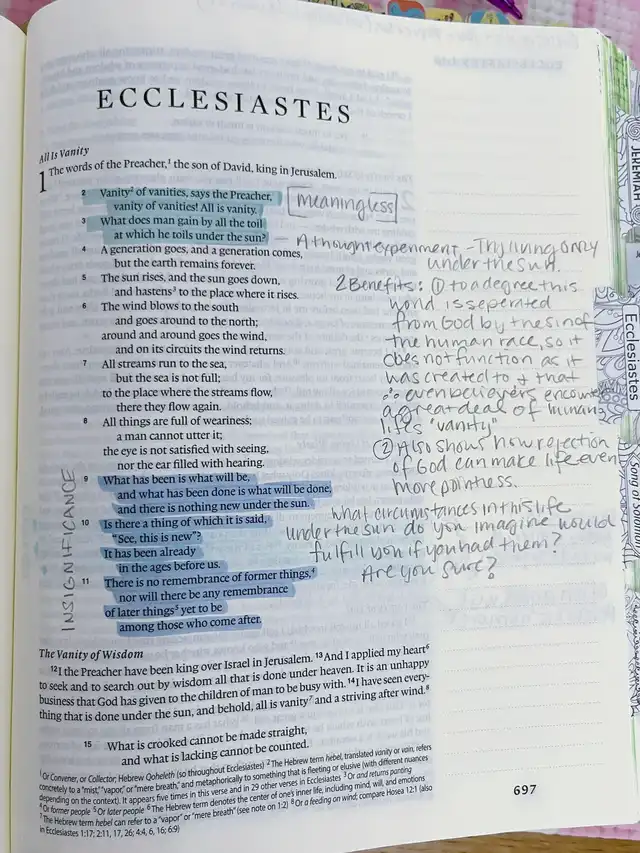 ECCLESIASTES
All Is Vanity
1 The words of the Preacher,1 the son of David, king in Jerusalem.
2 Vanity2 of vanities, says the Preacher,
vanity of vanities! All is vanity.
[meaningless]
3 What does man gain by all the toil
at which he toils under the sun?
— A thought experiment - Try living only
under the sun.
4 A generation goes, and a generation comes,
but the earth remains forever.
5 The sun rises, and the sun goes down,
and hastens3 to the place where it rises.
6 The wind blows to the south
and goes around to the north;
around and around goes the wind,
and on its circuits the wind returns.
7 All streams run to the sea,
but the sea is not full;
to the place where the streams flow,
there they flow again.
8 All things are full of weariness;
a man cannot utter it;
the eye is not satisfied with seeing,
nor the ear filled with hearing.
9 What has been is what will be,
and what has been done is what will be done,
and there is nothing new under the sun.
10 Is there a thing of which it is said,
"See, this is new"?
It has been already
in the ages before us.
11 There is no remembrance of former things,4
nor will there be any remembrance
of later things5 yet to be
among those who come after.
INSIGNIFICANCE
2 Benefits: ① to a degree this
world is seperated
from God by the sin of
the human race, so it
does not function as it
was created to + that
∴ even believers encounter
a great deal of human
lifes "vanity"
② Also shows how rejection
of God can make life even
more pointless.
What circumstances in this life
under the sun do you imagine would
fulfill you if you had them?
Are you sure?
The Vanity of Wisdom
12 I the Preacher have been king over Israel in Jerusalem. 13 And I applied my heart6
to seek and to search out by wisdom all that is done under heaven. It is an unhappy
business that God has given to the children of man to be busy with. 14 I have seen every-
thing that is done under the sun, and behold, all is vanity7 and a striving after wind.8
15 What is crooked cannot be made straight,
and what is lacking cannot be counted.
1 Or Convener, or Collector; Hebrew Qoheleth (so throughout Ecclesiastes) 2 The Hebrew term hebel, translated vanity or vain, refers
concretely to a "mist," "vapor," or "mere breath," and metaphorically to something that is fleeting or elusive (with different nuances
depending on the context). It appears five times in this verse and in 29 other verses in Ecclesiastes 3 Or and returns panting
4 Or former people 5 Or later people 6 The Hebrew term denotes the center of one's inner life, including mind, will, and emotions
7 The Hebrew term hebel can refer to a "vapor" or "mere breath" (see note on 1:2) 8 Or a feeding on wind; compare Hosea 12:1 (also
in Ecclesiastes 1:17; 2:11, 17, 26; 4:4, 6, 16; 6:9)
697
JEREMIAH
Ecclesiastes